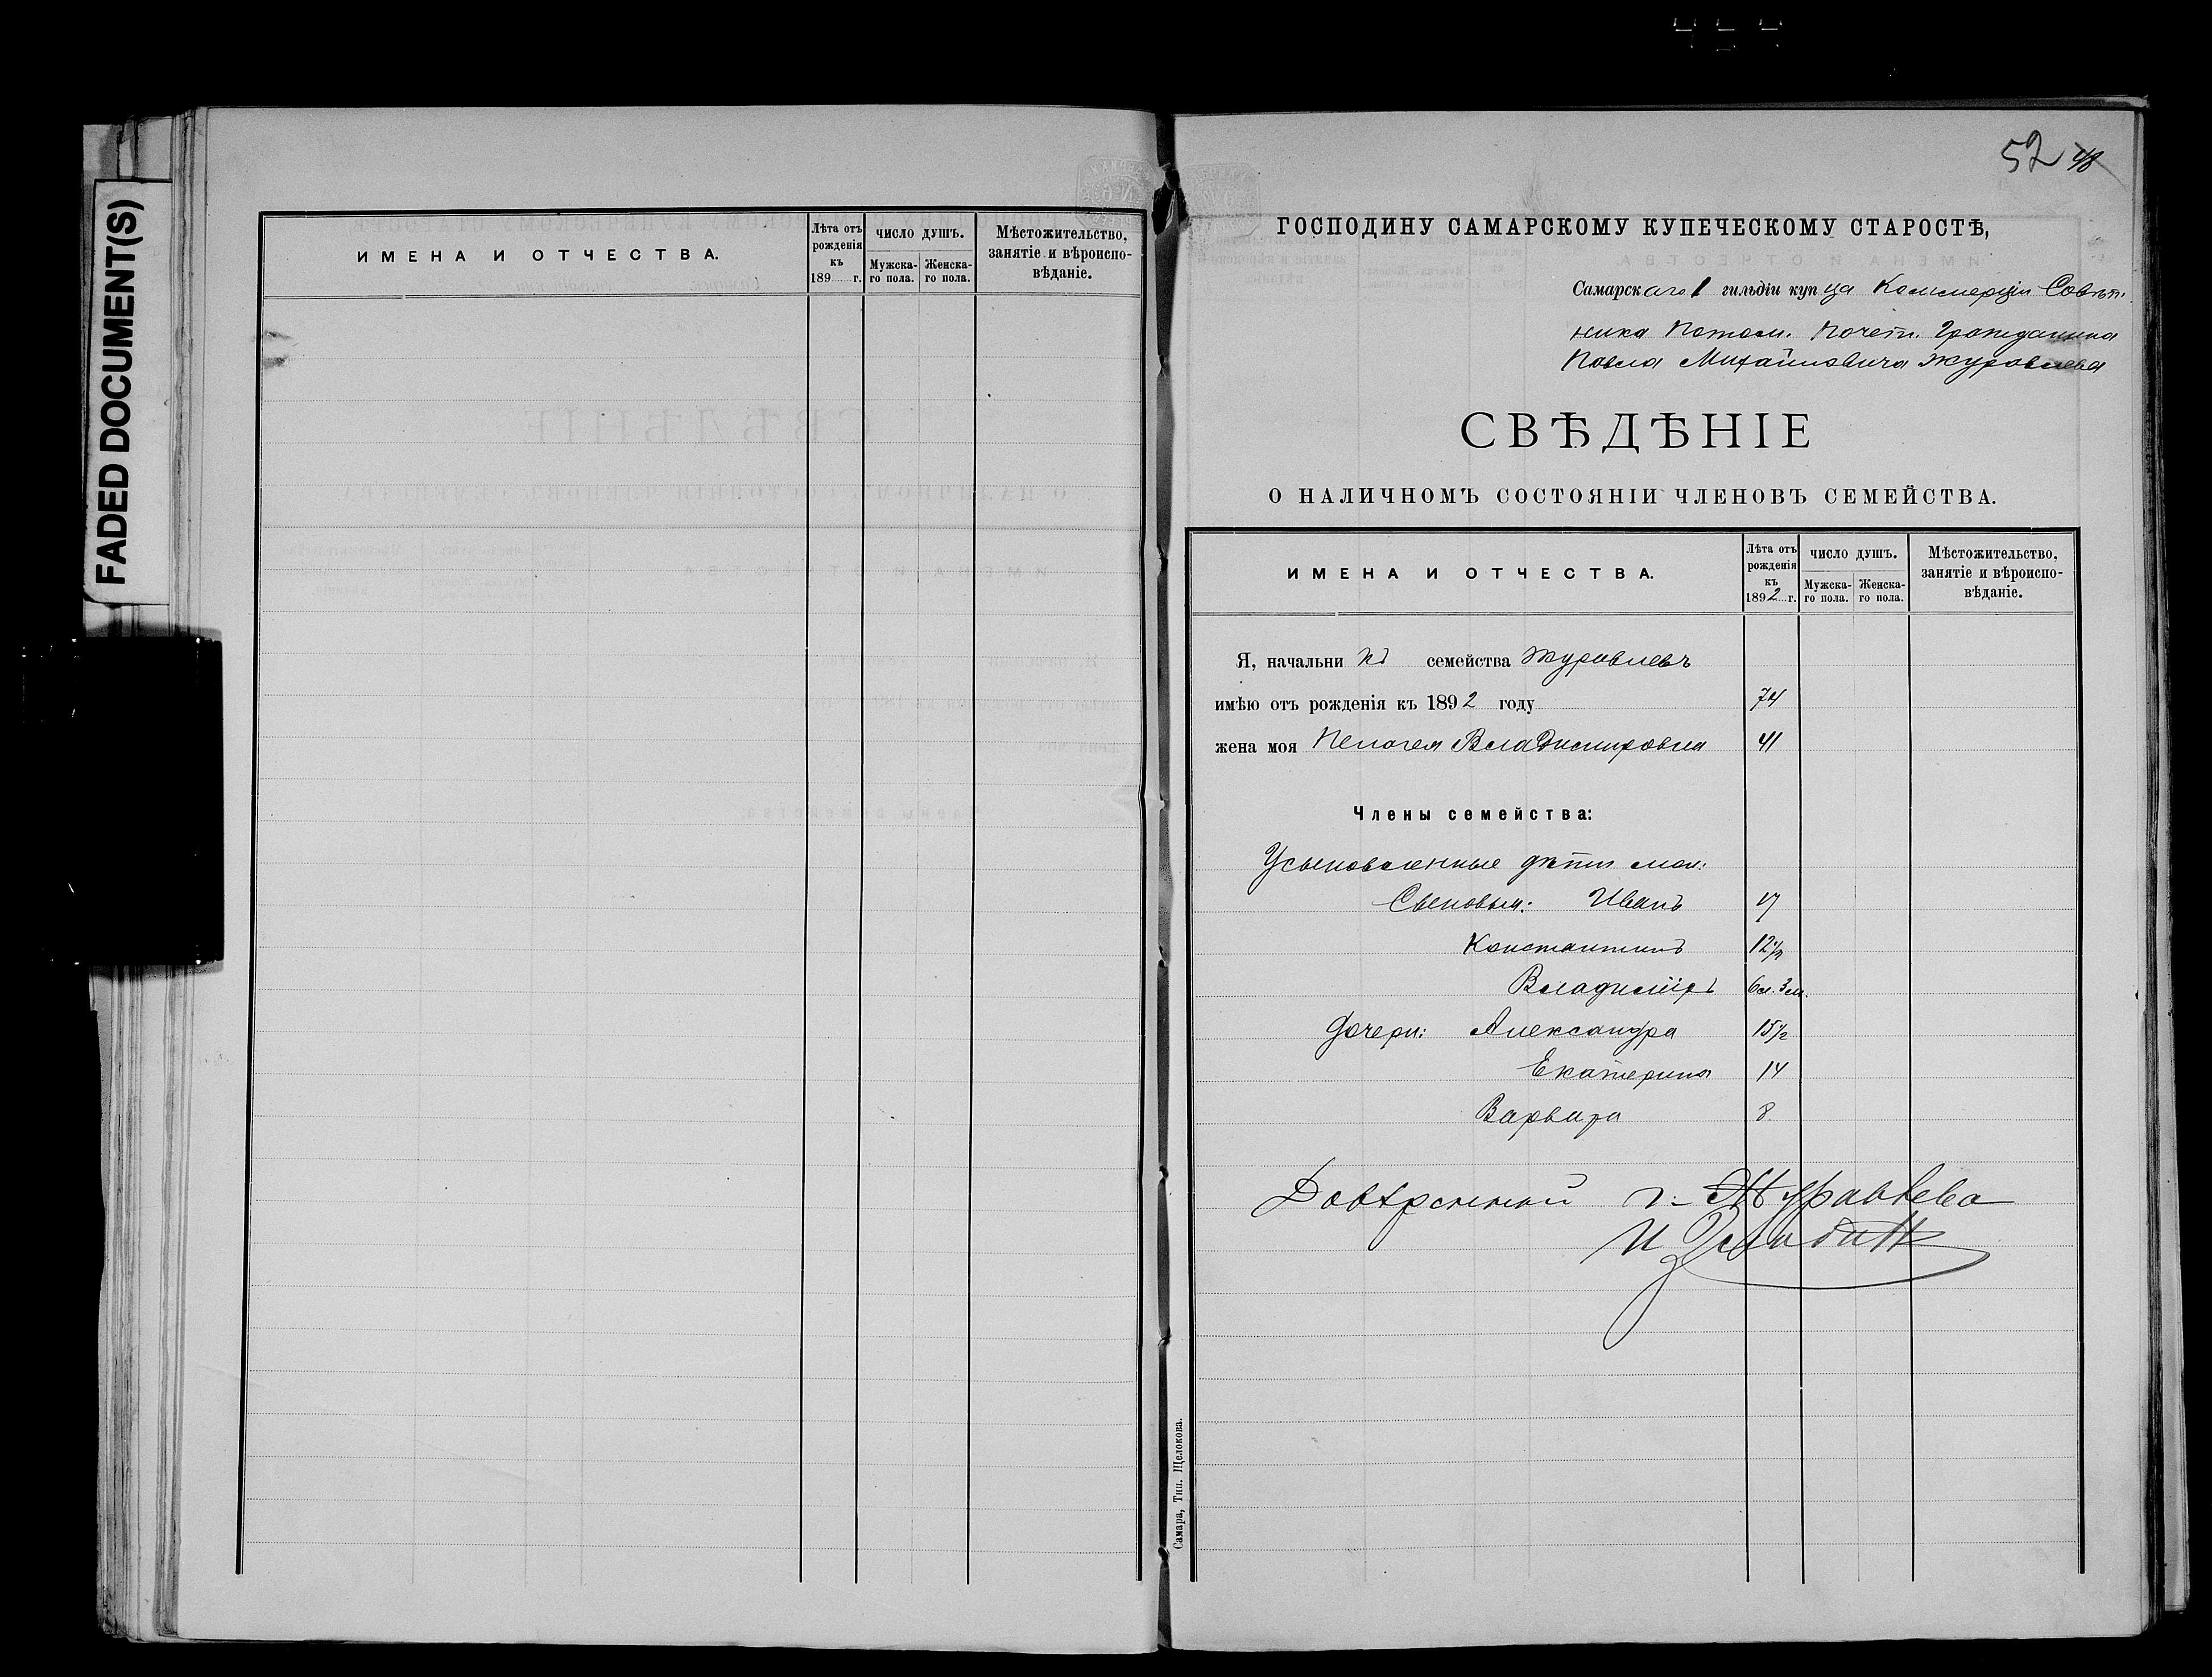 FADED DOCUMENT(S)
ИМЕНА И ОТЧЕСТВА.
Лѣта отъ рожденія къ 189 г.
ЧИСЛО ДУШЪ.
Мужска-го пола.
Женска-го пола.
Мѣстожительство, занятіе и вѣроиспо-вѣданіе.
52 48
ГОСПОДИНУ САМАРСКОМУ КУПЕЧЕСКОМУ СТАРОСТѢ,
Самарскаго 1 гильдіи купца Коммерціи Совѣт.
ника Потом. Почетн. Гражданина
Павла Михайловича Журавлева
СВѢДѢНІЕ
О НАЛИЧНОМЪ СОСТОЯНІИ ЧЛЕНОВЪ СЕМЕЙСТВА.
ИМЕНА И ОТЧЕСТВА.
Лѣта отъ рожденія къ 1892 г.
ЧИСЛО ДУШЪ.
Мужска-го пола.
Женска-го пола.
Мѣстожительство, занятіе и вѣроиспо-вѣданіе.
Я, начальникъ семейства Журавлевъ
имѣю отъ рожденія къ 1892 году 74
жена моя Пелагея Владимировна 41
Члены семейства:
Усыновленные дѣти мои:
Сыновья: Иванъ 17
Константинъ 12 1/2
Владиміръ 6 л. 3 м.
Дочери: Александра 15 1/2
Екатерина 14
Варвара 8
Довѣренный г. Журавлева
Самара, Тип. Щелокова.